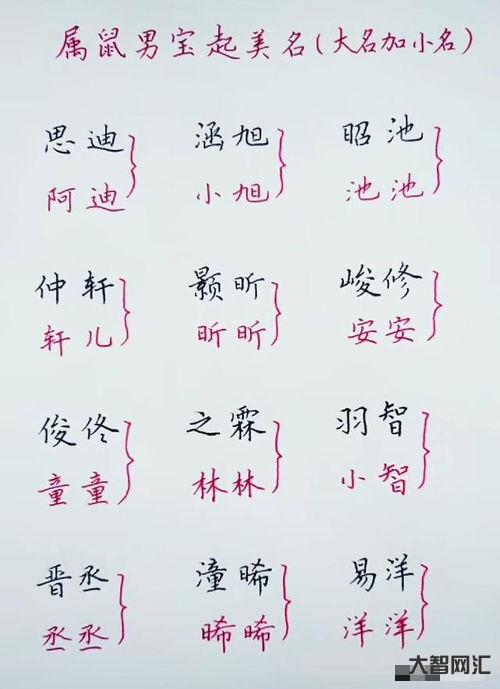 属鼠男宝起美名(大名加小名)
思迪 涵旭 昭池
阿迪 小旭 池池
仲轩 颢昕 峻修
轩儿 昕昕 安安
俊佟 之霖 羽智
童童 林林 小智
晋丞 潼晞 易洋
丞丞 晞晞 洋洋
大智网汇